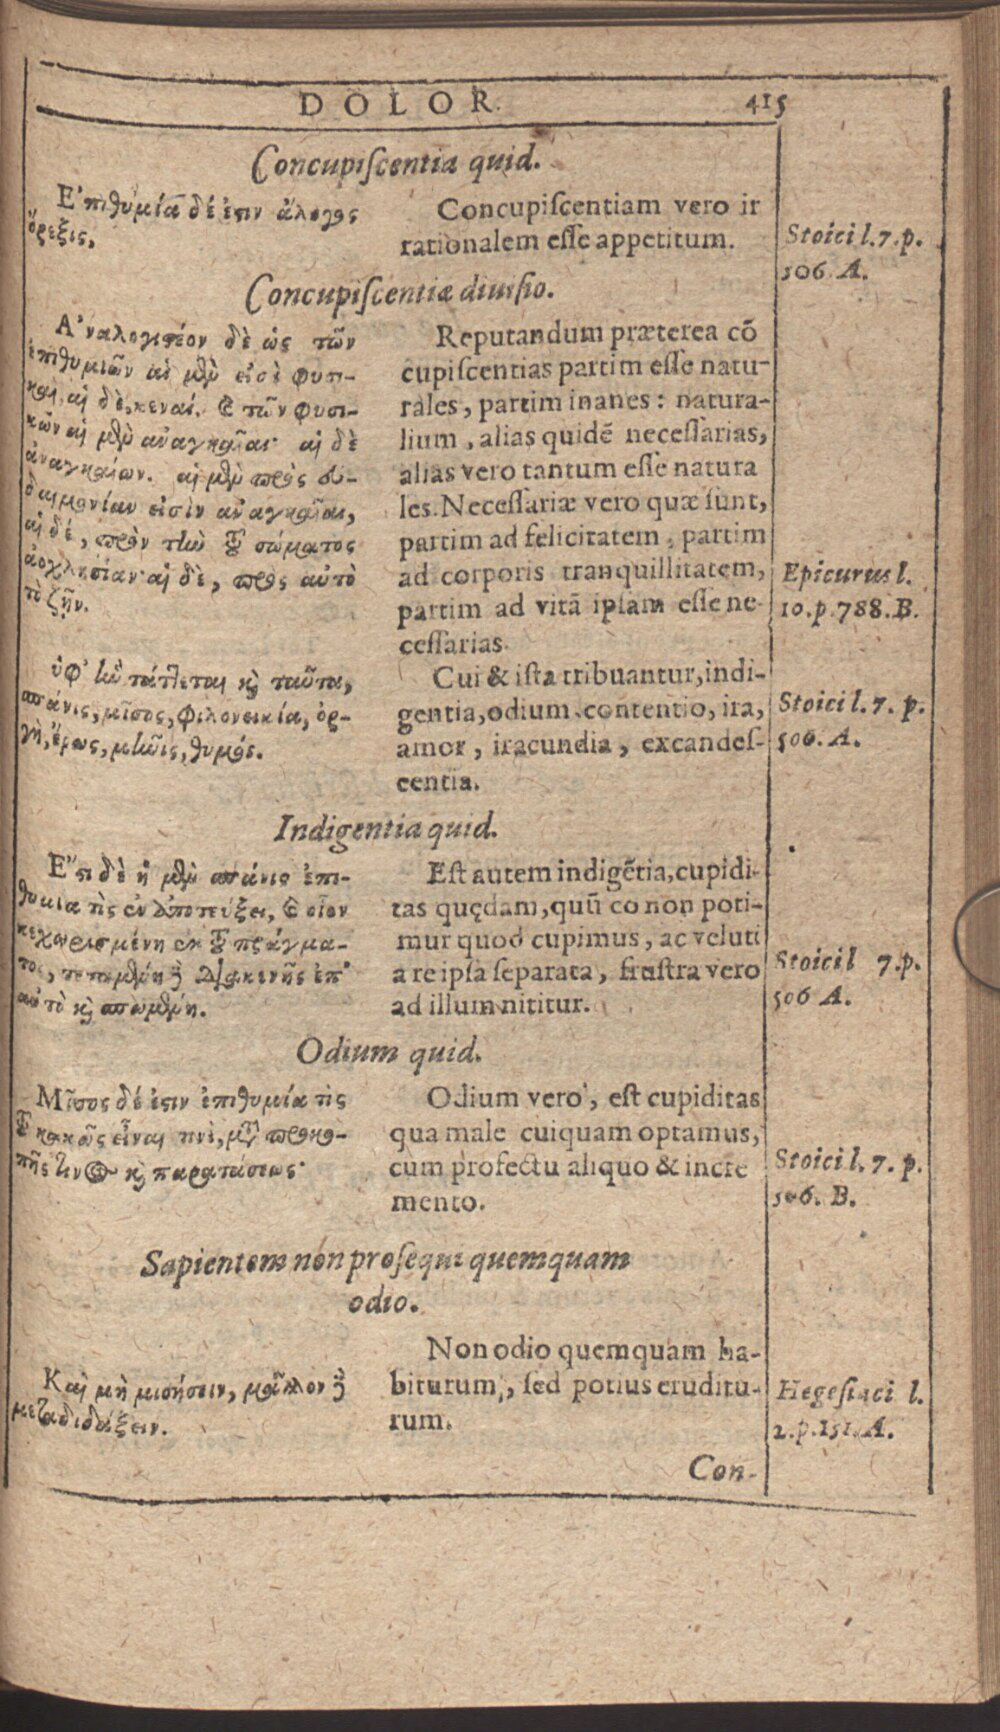 DOLOR. 415
Concupiscentia quid.
Ε᾽πιθυμία δέ ἐστιν ἄλογος
ὄρεξις,
Concupiſcentiam vero ir
rationalem eſſe appetitum.
Stoici l. 7. p.
506. A.
Concupiſcentiæ diuiſio.
Α᾽ναλογιστέον δὲ ὡς τῶν
ἐπιθυμιῶν αἱ μὲν εἰσὶ φυσι-
καὶ, αἱ δὲ, κεναί. καὶ τῶν φυσι-
κῶν αἱ μὲν ἀναγκαῖαι· αἱ δὲ
ἀναγκαίων. αἱ μὲν πρὸς εὐ-
δαιμονίαν εἰσὶν ἀναγκαῖαι,
αἱ δέ, πρὸν τὴν τοῦ σώματος
ἀοχλησίαν· αἱ δὲ, πρὸς αὐτὸ
τὸ ζῆν.
Reputandum præterea cō
cupiſcentias partim eſſe natu-
rales, partim inanes: natura-
lium, alias quidē neceſſarias,
alias vero tantum eſſe natura
les. Neceſſariæ vero quæ ſunt,
partim ad felicitatem, partim
ad corporis tranquillitatem,
partim ad vitā ipſam eſſe ne-
ceſſarias.
Epicurus l.
10. p. 788. B.
ὑφ᾽ ἣν τάττεται καὶ ταῦτα,
σπάνις, μῖσος, φιλονεικία, ὀρ-
γὴ, ἔρως, μῆνις, θυμός.
Cui & iſta tribuantur, indi-
gentia, odium, contentio, ira,
amor, iracundia, excandeſ-
centia.
Stoici l. 7. p.
506. A.
Indigentia quid.
Ε῎στι δὲ ἡ μὲν σπάνις ἐπι-
θυμία τὶς ἐν ἀποτεύξει, καὶ οἷον
κεχωρισμένη ἐκ τοῦ πράγμα-
τος, τεταμένη δὲ διακενῆς ἐπ᾽
αὐτὸ καὶ σπωμένη.
Eſt autem indigētia, cupidi-
tas quędam, quū eo non poti-
mur quod cupimus, ac veluti
a re ipſa ſeparata, fruſtra vero
ad illum nititur.
Stoici l 7. p.
506 A.
Odium quid.
Μῖσος δέ ἐστιν ἐπιθυμία τὶς
τοῦ κακῶς εἶναι τινὶ, μετὰ προκο-
πῆς τινος καὶ παρατάσεως·
Odium vero, eſt cupiditas
qua male cuiquam optamus,
cum profectu aliquo & incre
mento.
Stoici l. 7. p.
506. B.
Sapientem non proſequi quemquam
odio.
Καὶ μὴ μισήσειν, μᾶλλον δὲ
μεταδιδάξειν.
Non odio quemquam ha-
biturum, ſed potius eruditu-
rum.
Hegeſiaci l.
2. p. 151. A.
Con-